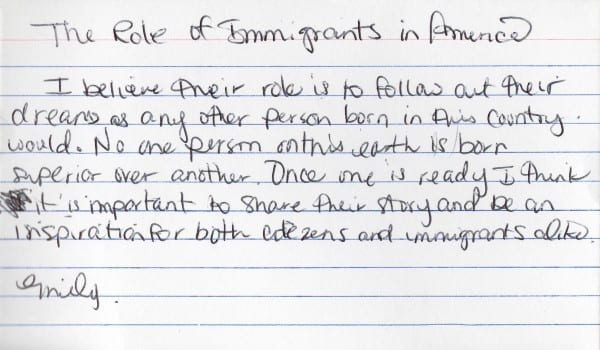 The Role of Immigrants in America
I believe their role is to follow out their
dreams as any other person born in this country
would. No one person on this earth is born
superior over another. Once one is ready I think
it is important to share their story and be an
inspiration for both citezens and immigrants alike.
Emily.